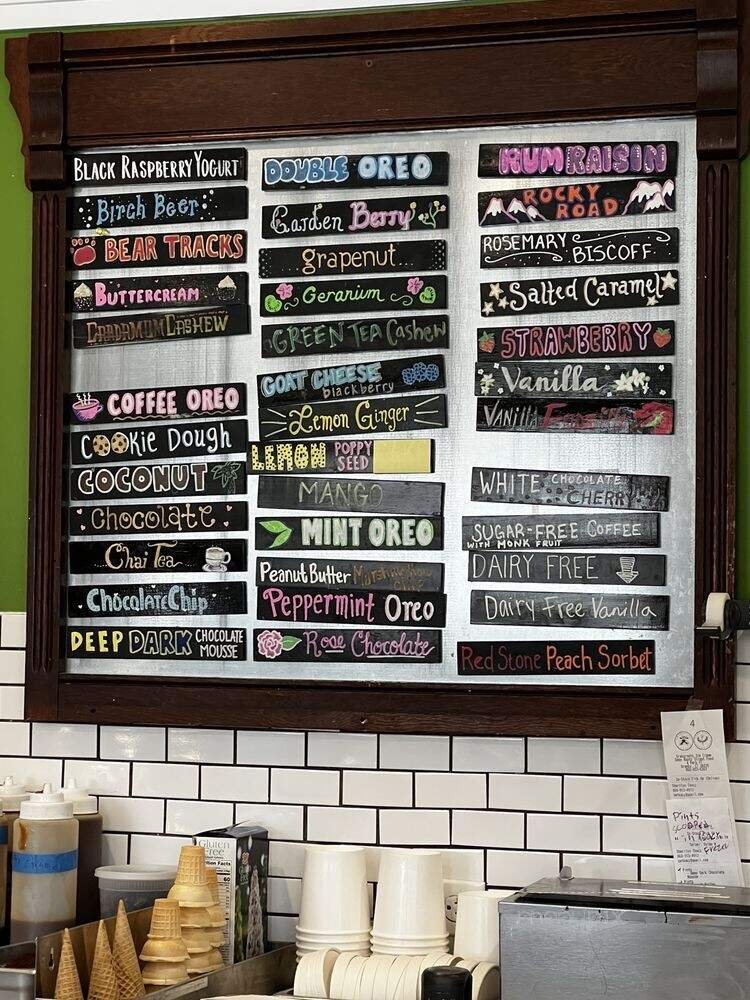 BLACK RASPBERRY YOGURT
Birch Beer
BEAR TRACKS
BUTTERCREAM
CARDAMUM CASHEW
COFFEE OREO
COOKIE DOUGH
COCONUT
CHOCOLATE
Chai Tea
CHOCOLATE CHIP
DEEP DARK CHOCOLATE
MOUSSE
DOUBLE OREO
Garden Berry
grapenut
Geranium
GREEN TEA Cashew
GOAT CHEESE
blackberry
Lemon Ginger
LEMON POPPY
SEED
MANGO
MINT OREO
PEANUT BUTTER
Peppermint Oreo
Rose Chocolate
RUM RAISIN
ROCKY
ROAD
ROSEMARY
BISCOFF
Salted Caramel
STRAWBERRY
Vanilla
VANILLA
WHITE CHOCOLATE
CHERRY
SUGAR-FREE COFFEE
WITH MONK FRUIT
DAIRY FREE
Dairy Free Vanilla
Red Stone Peach Sorbet
4
Pints
Gluten
Free
60